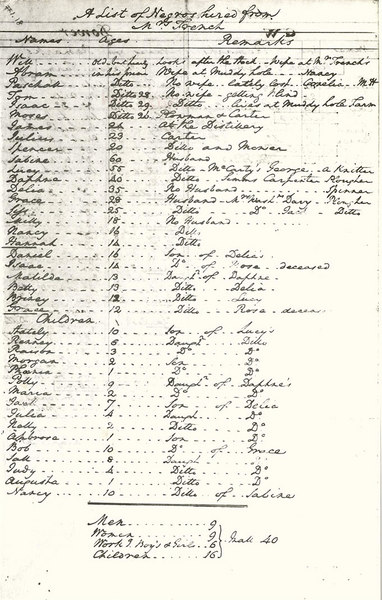 A List of Negros hired from
Mrs. French
Names Ages Remarks
Will old but hearty Looks after the Stock - Wife at Mrs. French's
Abram in his prime Wife at Muddy hole - Nancy
Paschal Ditto No wife - lately lost Cornelia - M: H
Tom Ditto 28 No wife - getting blind
Isaac Ditto 29 Ditto lives at Muddy hole Farm
Moses Ditto 26 Plowman & Carter
James 24 At the Distillery
Julius 23 Carter
Spencer 20 Ditto and Mower
Sabine 60 Husband
Lucy 55 Ditto McCarty's George - a Knitter
Daphne 40 Ditto Carpenter Plougher
Delia 35 No Husband Spinner
Grace 28 Husband - Mr. Davy - Plougher
Siss 25 Ditto Do Ditto
Milly 18 No Husband
Nancy 16 Ditto
Hannah 14 Ditto
Daniel 16 Son of Delia's
Isaac 14 Do of Rose - deceased
Matilda 13 Daughr. of Daphne
Betty 13 Ditto Delia
Briney 12 Ditto Lucy
Grace 12 Ditto Rose deceasd
Children
Stately 10 Son of Lucy's
6 Daughr. Ditto
3 Do Do
Morgan 2 Son Do
Phoenia 1 Do Do
Polly 9 Daughr. of Daphne's
Maria 2 Do Do
Jack 7 Son of Delia
Julia 4 Daughr. Do
Nelly 2 Ditto Do
Ambrose 1 Son Do
Bob 10 Do of Grace
Sall 8 Daughr. Do
Judy 4 Ditto Do
Augusta 1 Ditto Do
Nancy 10 Ditto of Sabine
Men 9
Women 9
Workg. Boy's & Girls 6 In all 40
Children 16